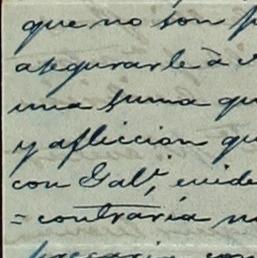 que no son
asegurarle à
una suma qu
y afliccion qu
con Gabl, evide
=contraria